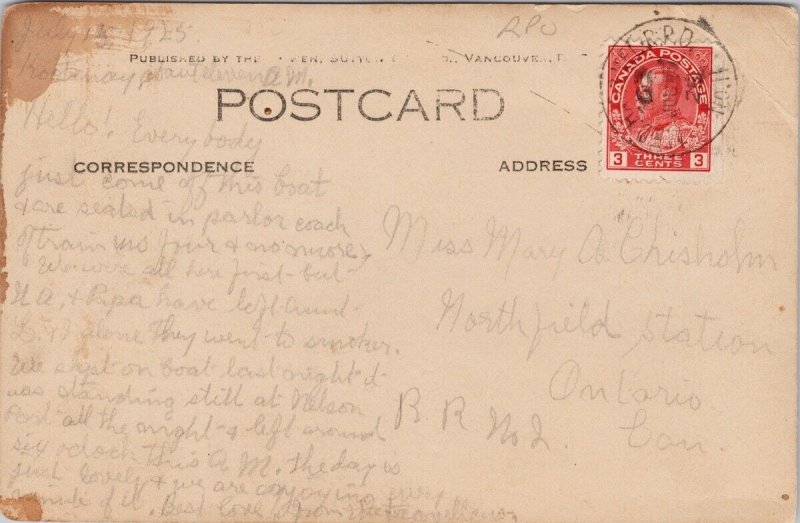 July 15 1925.
RPO
PUBLISHED BY THE BOWEN, BUTTON CO., VANCOUVER, B.C.
Kootenay eleven A.M.
POSTCARD
CANADA POSTAGE
3 THREE CENTS 3
R.P.O.
Hello! Everybody
CORRESPONDENCE
ADDRESS
just come off this boat
& are seated in parlor coach
of train us four & no more,
We were all here first but
U A. & Papa have left aunt
L. & B alone they went to smoker.
We slept on boat last night it
was standing still at Nelson
Port all the night & left around
six o'clock this A.M. the day is
just lovely & we are enjoying every
minute of it. Best love from the travellers.
Miss Mary A Chisholm
Northfield Station
Ontario
R R No 2. Can.